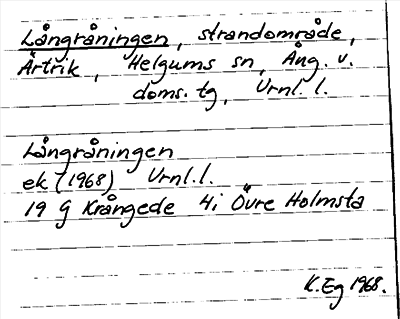 Långråningen, strandområde,
Ärtrik, Helgums sn, Ång. v.
doms. tg, Urnl. l.
Långråningen
ek (1968) Urnl. l.
19 G Krångede 4i Övre Holmsta
K. Eg 1968.